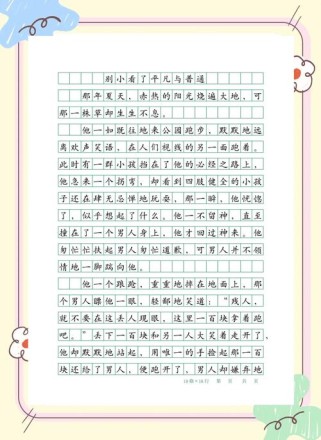 别小看了平凡与普通
那年夏天，赤热的阳光烧遍大地，可
那一株草却生生不息。
他一如既往地来公园跑步，默默地远
离欢声笑语，在人们视线的另一面跑着。
此时有一群小孩挡在了他的必经之路上，
他急来一个拐弯，却看到四肢健全的小孩
子还在肆无忌惮地玩耍，那一瞬，他恍惚
了，似乎想起了什么。他一不留神，直至
撞在了一个男人身上，他才回过神来。他
匆忙忙扶起男人匆忙道歉，可男人并不领
情地一脚踹向他。
他一个踉跄，重重地摔在地面上，那
个男人瞟他一眼，轻鄙地笑道：“残人，
就不要在这丢人现眼，这里一百块拿着跑
吧。”丢下一百块和另一人大笑着走开了，
他却默默地站起，用唯一的手捡起那一百
块还给了男人，便跑开了，男人却嫌弃地
18格×18行 第 页 共 页